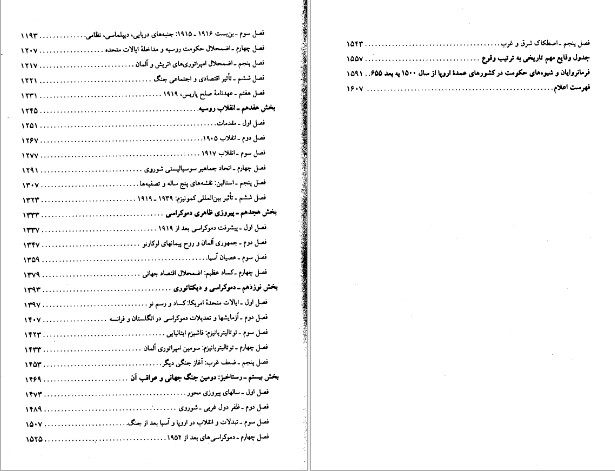 فصل سوم ـ بن‌بست ۱۹۱۶ ـ ۱۹۱۵: جنبه‌های دریایی، دیپلماسی، نظامی ۱۱۹۳
فصل چهارم ـ اضمحلال حکومت روسیه و مداخلهٔ ایالات متحده ۱۲۰۷
فصل پنجم ـ اضمحلال امپراتوری‌های اتریش و آلمان ۱۲۱۷
فصل ششم ـ تأثیر اقتصادی و اجتماعی جنگ ۱۲۲۱
فصل هفتم ـ عهدنامهٔ صلح پاریس، ۱۹۱۹ ۱۲۳۱
بخش هفدهم ـ انقلاب روسیه ۱۲۴۵
فصل اول ـ مقدمات ۱۲۵۱
فصل دوم ـ انقلاب ۱۹۰۵ ۱۲۶۷
فصل سوم ـ انقلاب ۱۹۱۷ ۱۲۷۷
فصل چهارم ـ اتحاد جماهیر سوسیالیستی شوروی ۱۲۹۱
فصل پنجم ـ استالین: نقشه‌های پنج ساله و تصفیه‌ها ۱۳۰۷
فصل ششم ـ تأثیر بین‌المللی کمونیزم: ۱۹۳۹ ـ ۱۹۱۹ ۱۳۲۳
بخش هجدهم ـ پیروزی ظاهری دموکراسی ۱۳۳۳
فصل اول ـ پیشرفت دموکراسی بعد از ۱۹۱۹ ۱۳۳۷
فصل دوم ـ جمهوری آلمان و روح پیمانهای لوکارنو ۱۳۴۷
فصل سوم ـ عصیان آسیا ۱۳۵۹
فصل چهارم ـ کساد عظیم: اضمحلال اقتصاد جهانی ۱۳۷۹
بخش نوزدهم ـ دموکراسی و دیکتاتوری ۱۳۹۳
فصل اول ـ ایالات متحدهٔ امریکا: کساد و رسم نو ۱۳۹۷
فصل دوم ـ آزمایشها و تعدیلات دموکراسی در انگلستان و فرانسه ۱۴۰۷
فصل سوم ـ توتالیتریانیزم: فاشیزم ایتالیایی ۱۴۲۳
فصل چهارم ـ توتالیتریانیزم: سومین امپراتوری آلمان ۱۴۳۳
فصل پنجم ـ ضعف غرب: آغاز جنگی دیگر ۱۴۵۳
بخش بیستم ـ رستاخیز: دومین جنگ جهانی و عواقب آن ۱۴۶۹
فصل اول ـ سالهای پیروزی محور ۱۴۷۳
فصل دوم ـ ظفر دول غربی ـ شوروی ۱۴۸۹
فصل سوم ـ تبدلات و انقلاب در اروپا و آسیا بعد از جنگ ۱۵۰۷
فصل چهارم ـ دموکراسی‌های بعد از ۱۹۵۲ ۱۵۲۵
فصل پنجم ـ اصطکاک شرق و غرب ۱۵۴۳
جدول وقایع مهم تاریخی به ترتیب وقوع ۱۵۵۷
فرمانروایان و شیوه‌های حکومت در کشورهای عمدهٔ اروپا از سال ۱۵۰۰ به بعد ۶۵۵ ۱۵۹۱
فهرست اعلام ۱۶۰۷